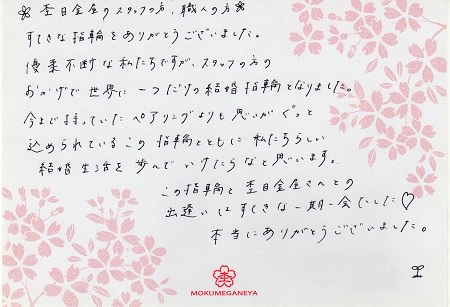 ❀ 杢目金屋のスタッフの方、職人の方❀
すてきな指輪をありがとうございました。
優柔不断な私たちですが、スタッフの方の
おかげで世界に一つだけの結婚指輪となりました。
今まで持っていたペアリングよりも思いがぐっと
込められているこの指輪とともに私たちらしい
結婚生活を歩んでいけたらなと思います。
この指輪と杢目金屋さんとの
出逢いはすてきな一期一会でした♡
本当にありがとうございました。
MOKUMEGANEYA